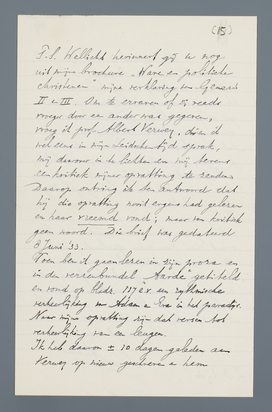 (15)
F.S. Wellicht herinnert gij u nog
uit mijn brochure "Ware en politieke
christenen" mijne verklaring van Genesis
II en III. Om te ervaren of zij reeds
vroeger door een ander was gegeven,
vroeg ik prof. Albert Verwey, dien ik
wel eens in mijn leidentijd sprak,
mij daarover in te lichten en mij tevens
een kritiek mijner opvatting te zenden
Daarop ontving ik ten antwoord dat
hij die opvatting nooit ergens had gelezen
en haar vreemd vond; maar van kritiek
geen woord. Die brief was gedateerd
8 Juni '33.
Toen ben ik gaan lezen in zijn proza en
in de verzenbundel "Aarde" getiteld
en vond op bladz. 117 e.v. een rythmische
verheerlijking van Adam en Eva in het paradijs.
Naar mijne opvatting zijn dat verzen tot
verheerlijking van een leugen.
Ik heb daarover ± 10 dagen geleden aan
Verwey op nieuw geschreven en hem